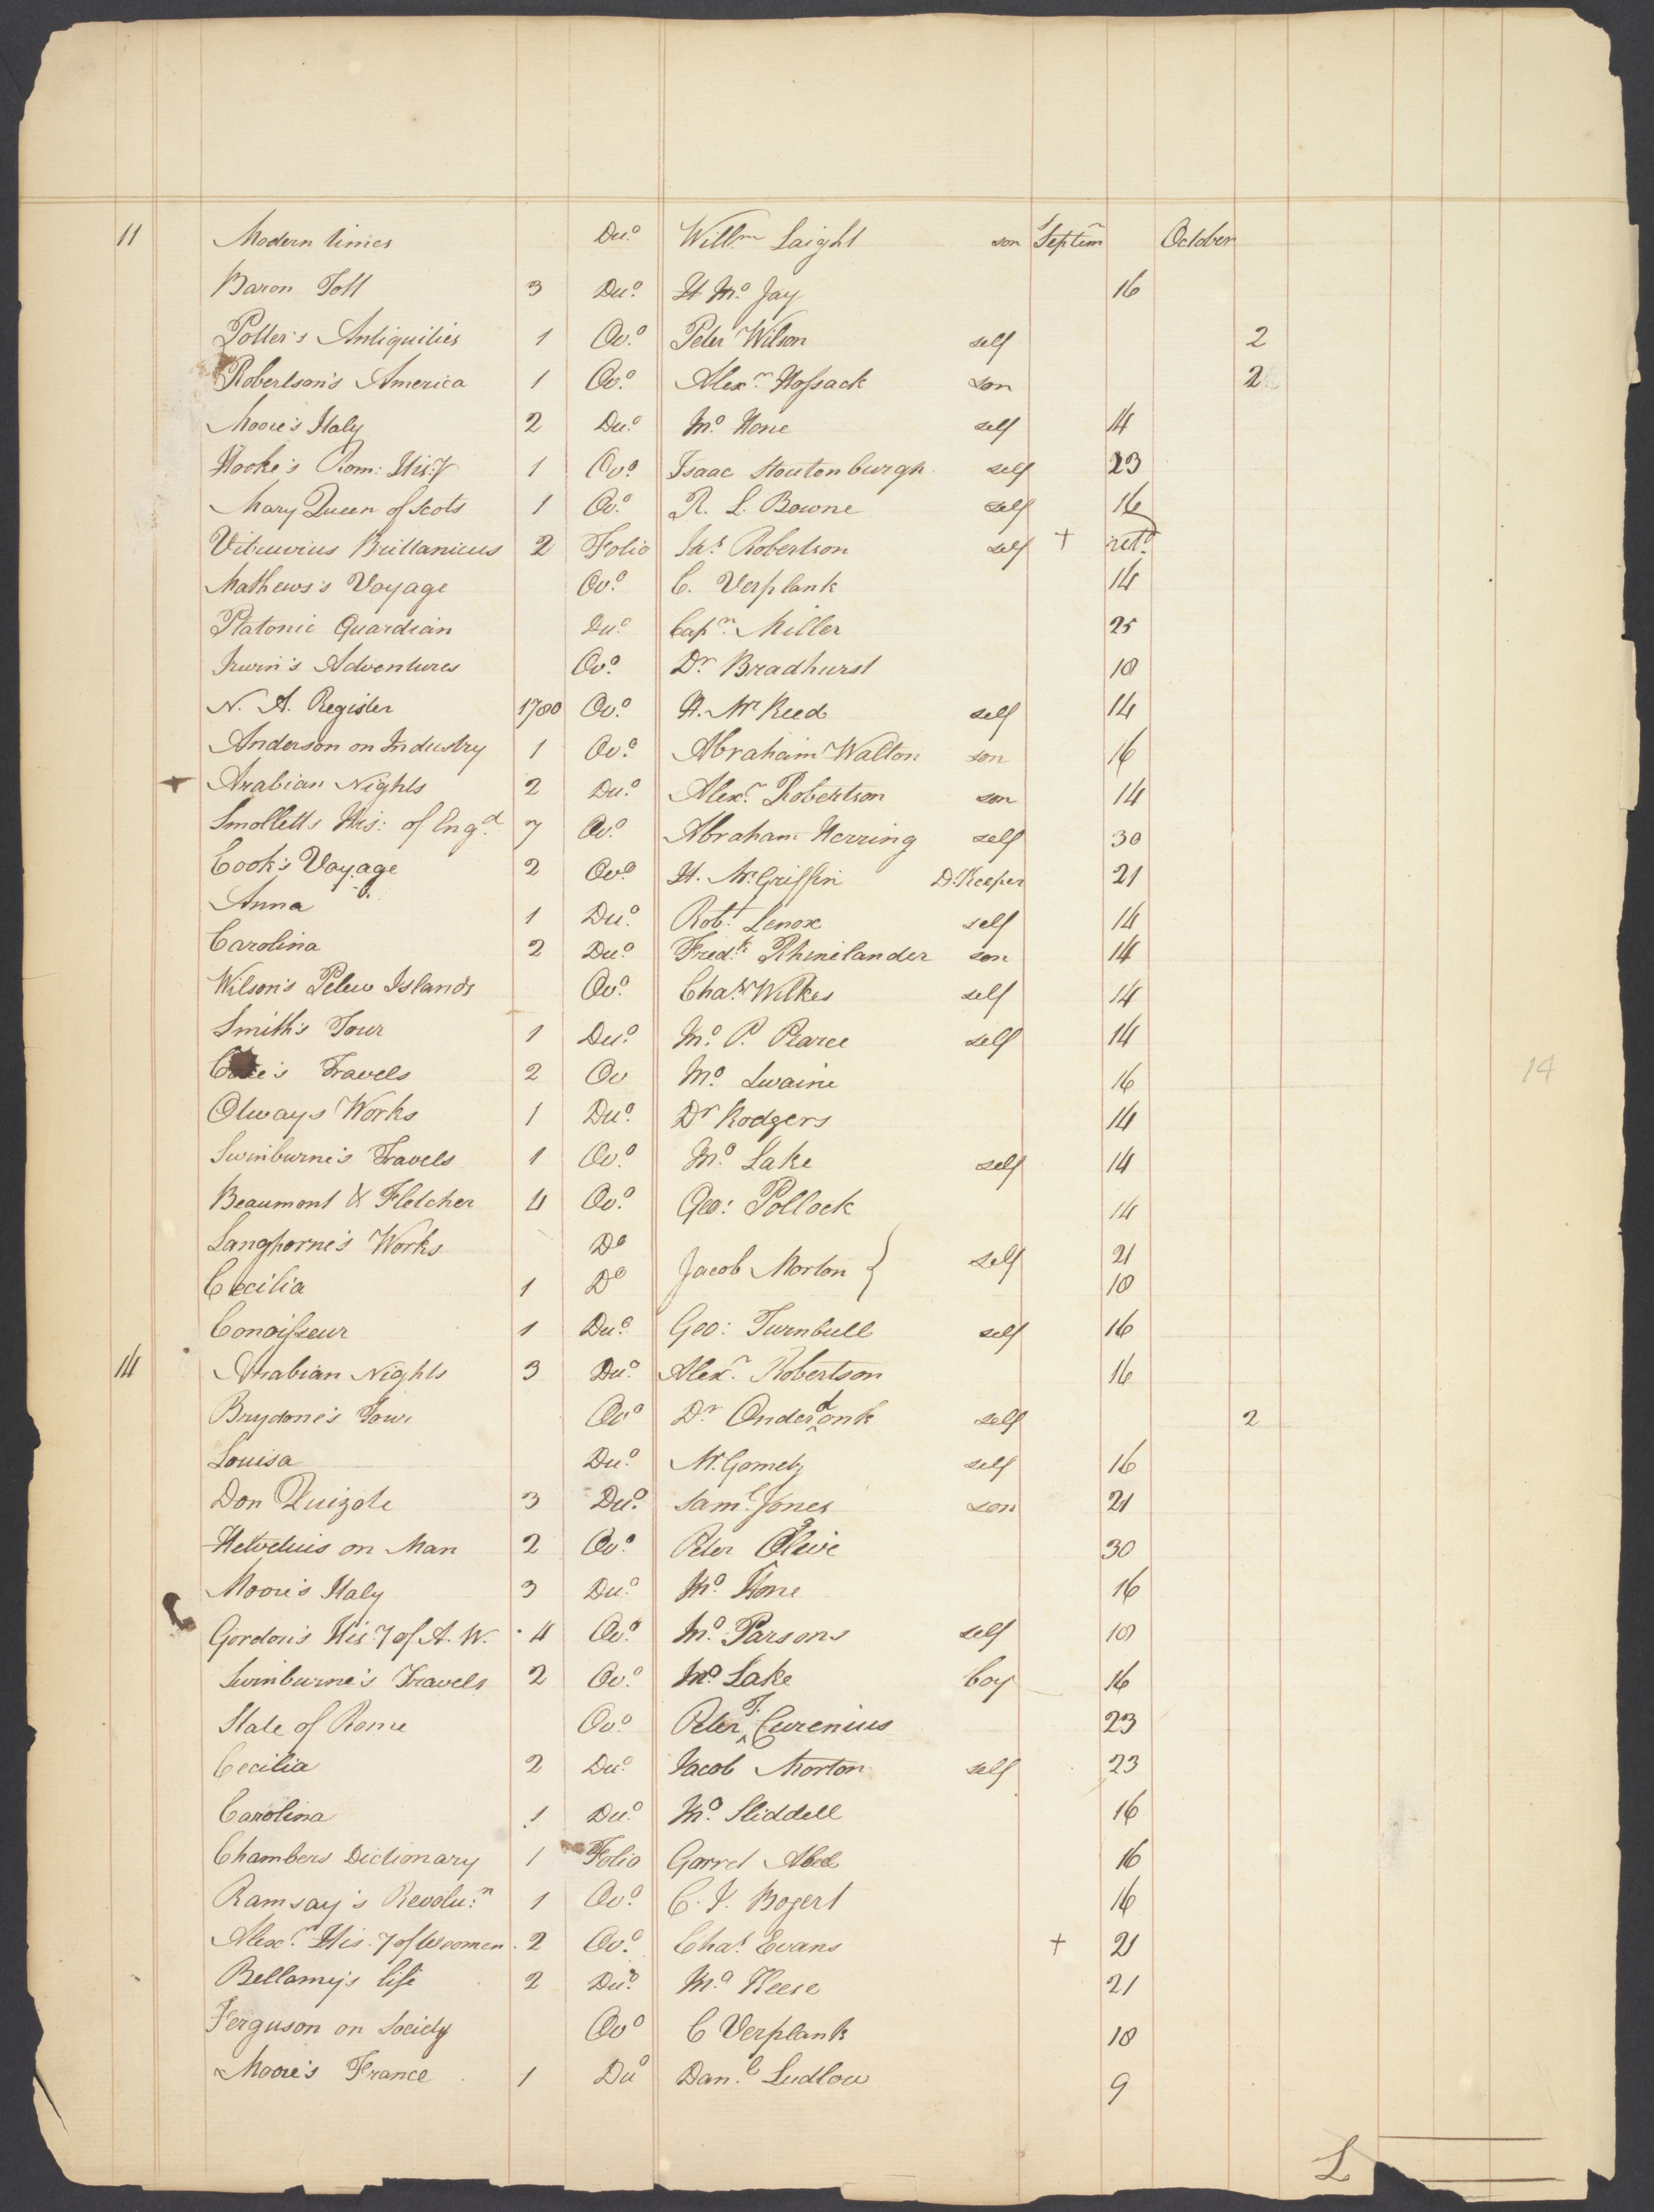 11 Modern times Du.o Willm Laight son Septem October
Baron Tott 3 Du.o H Mo Jay 16
Potter's Antiquities 1 Ov.o Peter Wilson self 2
Robertson's America 1 Ov.o Alexr Hossack son 2
Moore's Italy 2 Du.o Mo Hone self 14
Hooke's Rom: His:y 1 Ov.o Isaac Stoutenburgh self 23
Mary Queen of Scots 1 Ov.o R. L. Bowne self 16
Vitruvius Brittanicus 2 Folio Jas Robertson self + retd
Mathews's Voyage Ov.o C. Verplank 14
Platonic Guardian Du.o Capn Miller 25
Irwin's Adventures Ov.o Dr Bradhurst 18
N. A. Register 1780 Ov.o H. Mr Reed self 14
Anderson on Industry 1 Ov.o Abraham Walton son 16
+ Arabian Nights 2 Du.o Alexr Robertson son 14
Smolletts His: of Engd 7 Ov.o Abraham Herring self 30
Cook's Voyage 2 Ov.o H. Mr Griffin D:Keeper 21
Anna 1 Du.o Robt Lenox self 14
Carolina 2 Du.o Fredk Rhinelander son 14
Wilson's Pelew Islands Ov.o Chas Wilkes self 14
Smith's Tour 1 Du.o Mo P. Pearce self 14
Travels 2 Ov Mo Swaine 16 14
Otways Works 1 Du.o Dr Rodgers 14
Swinburne's Travels 1 Ov.o Mo Lake self 14
Beaumont & Fletcher 4 Ov.o Geo: Pollock 14
Langhorne's Works Do Jacob Morton } self 21
Cecilia 1 Do 18
Conoisseur 1 Du.o Geo: Turnbull self 16
14 Arabian Nights 3 Du.o Alexr Robertson 16
Brydone's Tour Ov.o Dr Onderdonk self 2
Louisa Du.o Mr Gometz self 16
Don Quixote 3 Du.o Saml Jones son 21
Helvetius on Man 2 Ov.o Peter 30
Moore's Italy 3 Du.o Mo Hone 16
Gordon's His:y of A. W. 4 Ov.o Mo Parsons self 18
Swinburne's Travels 2 Ov.o Mo Lake boy 16
State of Rome Ov.o Peter T. Curenius 23
Cecilia 2 Du.o Jacob Morton self 23
Carolina 1 Du.o Mo Sliddell 16
Chambers Dictionary 1 Folio Garret Abeel 16
Ramsay's Revolu:n 1 Ov.o C. J. Bogert 16
Alexr His:y of Weomen 2 Ov.o Chas Evans + 21
Bellamy's life 2 Du.o Mo Keese 21
Ferguson on Society Ov.o C Verplank 18
Moore's France 1 Du.o Danl Ludlow 9
L